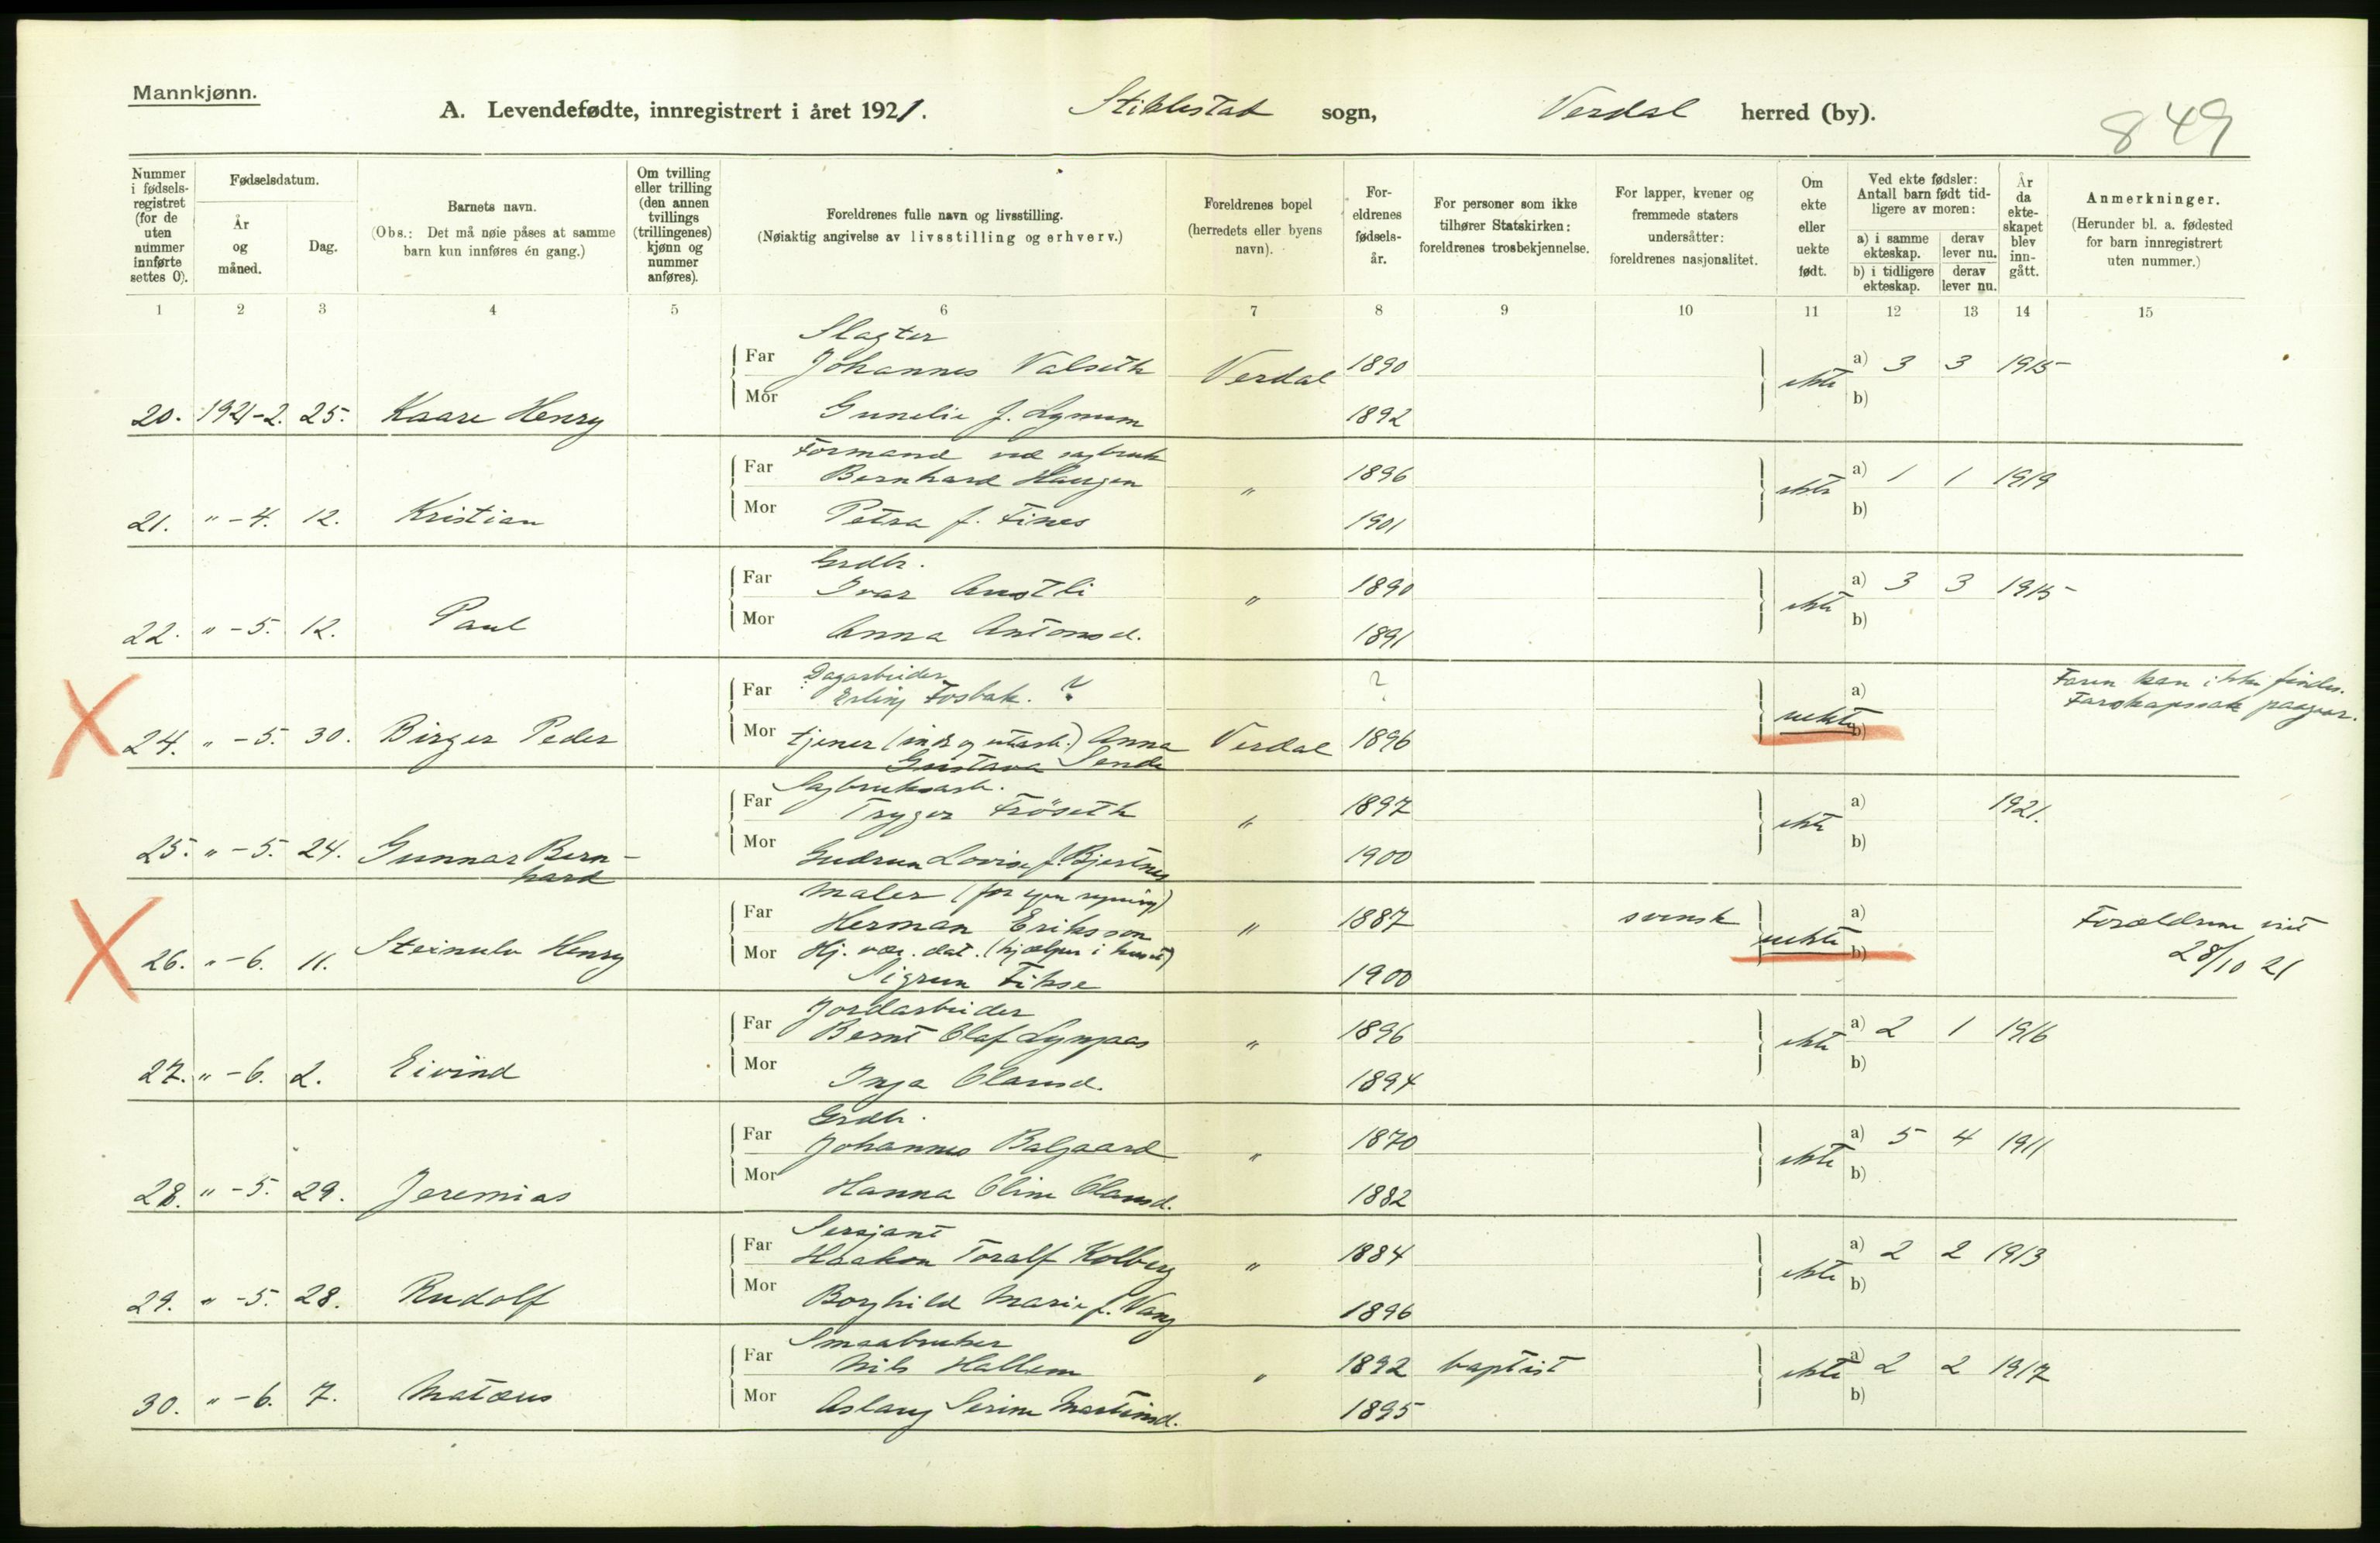 Mannkjønn.
A. Levendefødte, innregistrert i året 1921. Stiklestad sogn, Verdal herred (by).
849
Nummer i fødsels-registret (for de uten nummer innførte settes 0).
Fødselsdatum.
År og måned.
Dag.
Barnets navn.
(Obs.: Det må nøie påses at samme barn kun innføres én gang.)
Om tvilling eller trilling (den annen tvillings (trillingenes) kjønn og nummer anføres).
Foreldrenes fulle navn og livsstilling.
(Nøiaktig angivelse av livsstilling og erhverv.)
Foreldrenes bopel (herredets eller byens navn).
For-eldrenes fødsels-år.
For personer som ikke tilhører Statskirken: foreldrenes trosbekjennelse.
For lapper, kvener og fremmede staters undersåtter: foreldrenes nasjonalitet.
Om ekte eller uekte født.
Ved ekte fødsler: Antall barn født tid-ligere av moren:
a) i samme ekteskap.
derav lever nu.
b) i tidligere ekteskap.
derav lever nu.
År da ekte-skapet blev inn-gått.
Anmerkninger.
(Herunder bl. a. fødested for barn innregistrert uten nummer.)
1 2 3 4 5 6 7 8 9 10 11 12 13 14 15
Slagter
Far Johannes Valseth Verdal 1890 ekte a) 3 3 1915
20. 1921-2. 25. Kaare Henry Mor Gunelie f. Lynum 1892 b)
Formand ved sagbruk
Far Bernhard Haugen " 1896 ekte a) 1 1 1919
21. " - 4. 12. Kristian Mor Petra f. Fines 1901 b)
Grdbr.
Far Ivar Austli " 1890 ekte a) 3 3 1915
22. " - 5. 12. Paul Mor Anna Antonsd. 1891 b)
Dagarbeider
Far Erling Fosbak. ? ? a) Faren kan ikke findes.
Farskapssak paagaar.
24. " - 5. 30. Birger Peder Mor tjener (inde og utearb.) Anna Verdal 1896 uekte b)
Gustava Sende
Sagbruksarb.
Far Trygve Fröseth " 1897 ekte a) 1921.
25. " - 5. 24. Gunnar Bern-
hard
Mor Gudrun Lovise f. Bjertnes 1900 b)
Maler (for egen regning)
Far Herman Eriksson " 1887 svensk uekte a) Forældrene viet
28/10 21
26. " - 6. 11. Steinulv Henry Mor Hj. vær. dat. (hjælper i huset) b)
Sigrun Fikse 1900
Jordarbeider
Far Bernt Olaf Lyngaas " 1896 ekte a) 2 1 1916
27. " - 6. 2. Eivind Mor Inga Olausd. 1894 b)
Grdbr.
Far Johannes Balgaard " 1870 ekte a) 5 4 1911
28. " - 5. 29. Jeremias Mor Hanna Oline Olausd. 1882 b)
Sersjant
Far Haakon Toralf Kolberg " 1884 ekte a) 2 2 1913
29. " - 5. 28. Rudolf Mor Borghild Marie f. Vang 1896 b)
Smaabruker
Far Nils Hallem " 1892 baptist ekte a) 2 2 1917
30. " - 6. 7. Matæus Mor Aslaug Serine Martinsd. 1895 b)